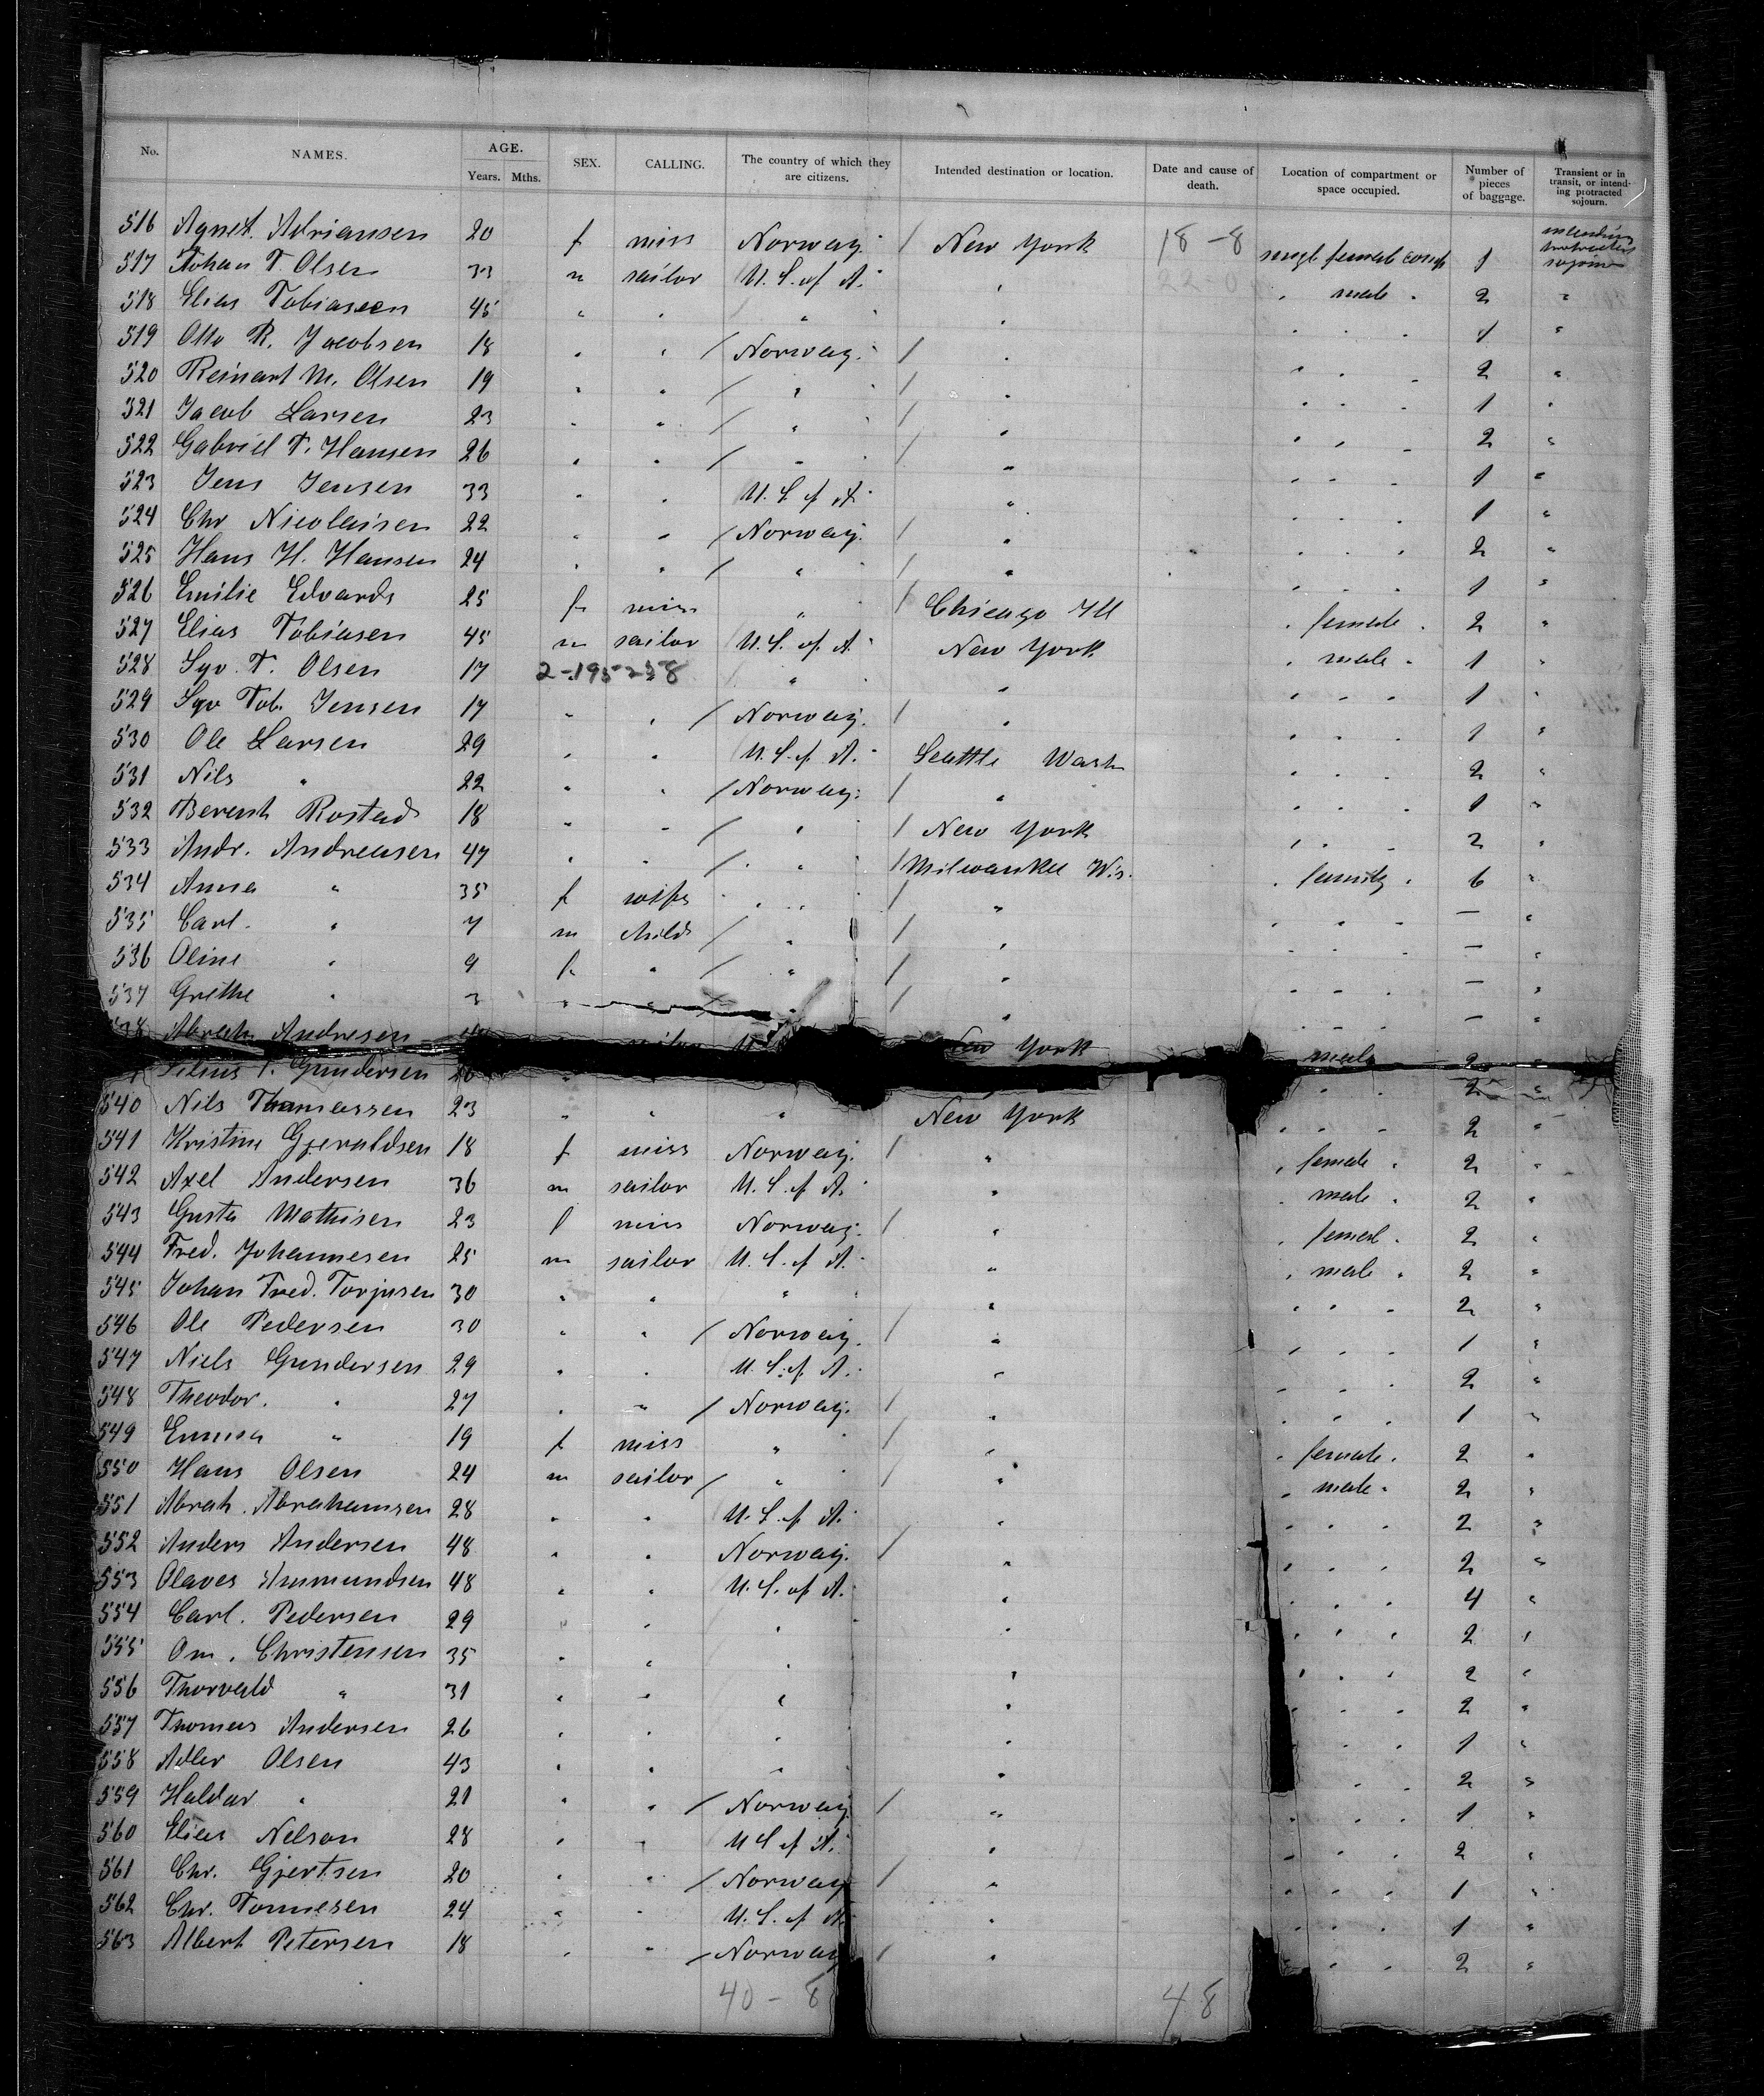 No. NAMES. AGE. Years. Mths. SEX. CALLING. The country of which they are citizens. Intended destination or location. Date and cause of death. Location of compartment or space occupied. Number of pieces of baggage. Transient or in transit, or intending protracted sojourn.
516 Agnet. Adriansen 20 f miss Norway. / New York 18-8 singl female comp 1 intending protracted sojourn
517 Johan T. Olsen 33 m sailor U.S. of A. " 22-0 " male " 2 "
518 Elias Tobiasen 45 " " " " " " " 1 "
519 Otto R. Jacobsen 18 " " / Norway. / " " " " 2 "
520 Reinart M. Olsen 19 " " / " / " " " " 1 "
521 Jacob Larsen 23 " " / " / " " " " 2 "
522 Gabriel T. Hansen 26 " " / " / " " " " 1 "
523 Jens Jensen 33 " " U.S. of A. " " " " 1 "
524 Chr Nicolaisen 22 " " / Norway. / " " " " 2 "
525 Hans H. Hansen 24 " " / " / " " " " 1 "
526 Emilie Edvards 25 f miss " / Chicago Ill " female " 2 "
527 Elias Tobiasen 45 m sailor U.S. of A. New York " male " 1 "
528 Syv. T. Olsen 17 2-195-258 " " " " " 1 "
529 Syv Tob. Jensen 17 " " / Norway. / " " " " 1 "
530 Ole Larsen 29 " " U.S. of A. Seattle Wash " " " 2 "
531 Nils " 22 " " / Norway. / " " " " 1 "
532 Berent Rostad 18 " " / " / New York " " " 2 "
533 Andr. Andreasen 47 " " / " / Milwaukee Wis. " family " 6 "
534 Anna " 35 f wife " / " " " " — "
535 Carl. " 7 m child / " / " " " " — "
536 Oline " 9 f " / " / " " " " — "
537 Grethe " 3 " " " / " " " " — "
538 Abrah Andresen New York male 2 "
T. Gundersen " " " 2 "
540 Nils Thomassen 23 " " " New York " " " 2 "
541 Kristine Gjeraldsen 18 f miss Norway. / " " female " 2 "
542 Axel Andersen 36 m sailor U.S. of A. " " male " 2 "
543 Gusta Mathisen 23 f miss Norway. / " " femal " 2 "
544 Fred. Johannesen 25 m sailor U.S. of A. " " male " 2 "
545 Johan Fred. Torjusen 30 " " " " " " " 2 "
546 Ole Pedersen 30 " " / Norway. / " " " " 1 "
547 Niels Gundersen 29 " " U.S. of A. " " " " 2 "
548 Theodor. " 27 " " / Norway. / " " " " 1 "
549 Emma " 19 f miss " / " " female " 2 "
550 Hans Olsen 24 m sailor / " / " " male " 2 "
551 Abrah. Abrahamsen 28 " " U.S. of A. " " " " 2 "
552 Anders Andersen 48 " " Norway. / " " " " 2 "
553 Olaves Ammundsen 48 " " U.S. of A. " " " " 4 "
554 Carl. Pedersen 29 " " " " " " " 2 "
555 Om. Christensen 35 " " " " " " " 2 "
556 Thorvald " 31 " " " " " " " 2 "
557 Thomas Andersen 26 " " " " " " " 1 "
558 Adler Olsen 43 " " " " " " 2 "
559 Haldar " 21 " " / Norway / " " " " 1 "
560 Elias Nelson 28 " " U S of A. " " " " 2 "
561 Chr. Gjertsen 20 " " / Norway / " " " " 1 "
562 Chr. Tonnesen 24 " " U.S. of A " " " " 1 "
563 Albert Petersen 18 " " / Norway / " " " " 2 "
40 - 8 48